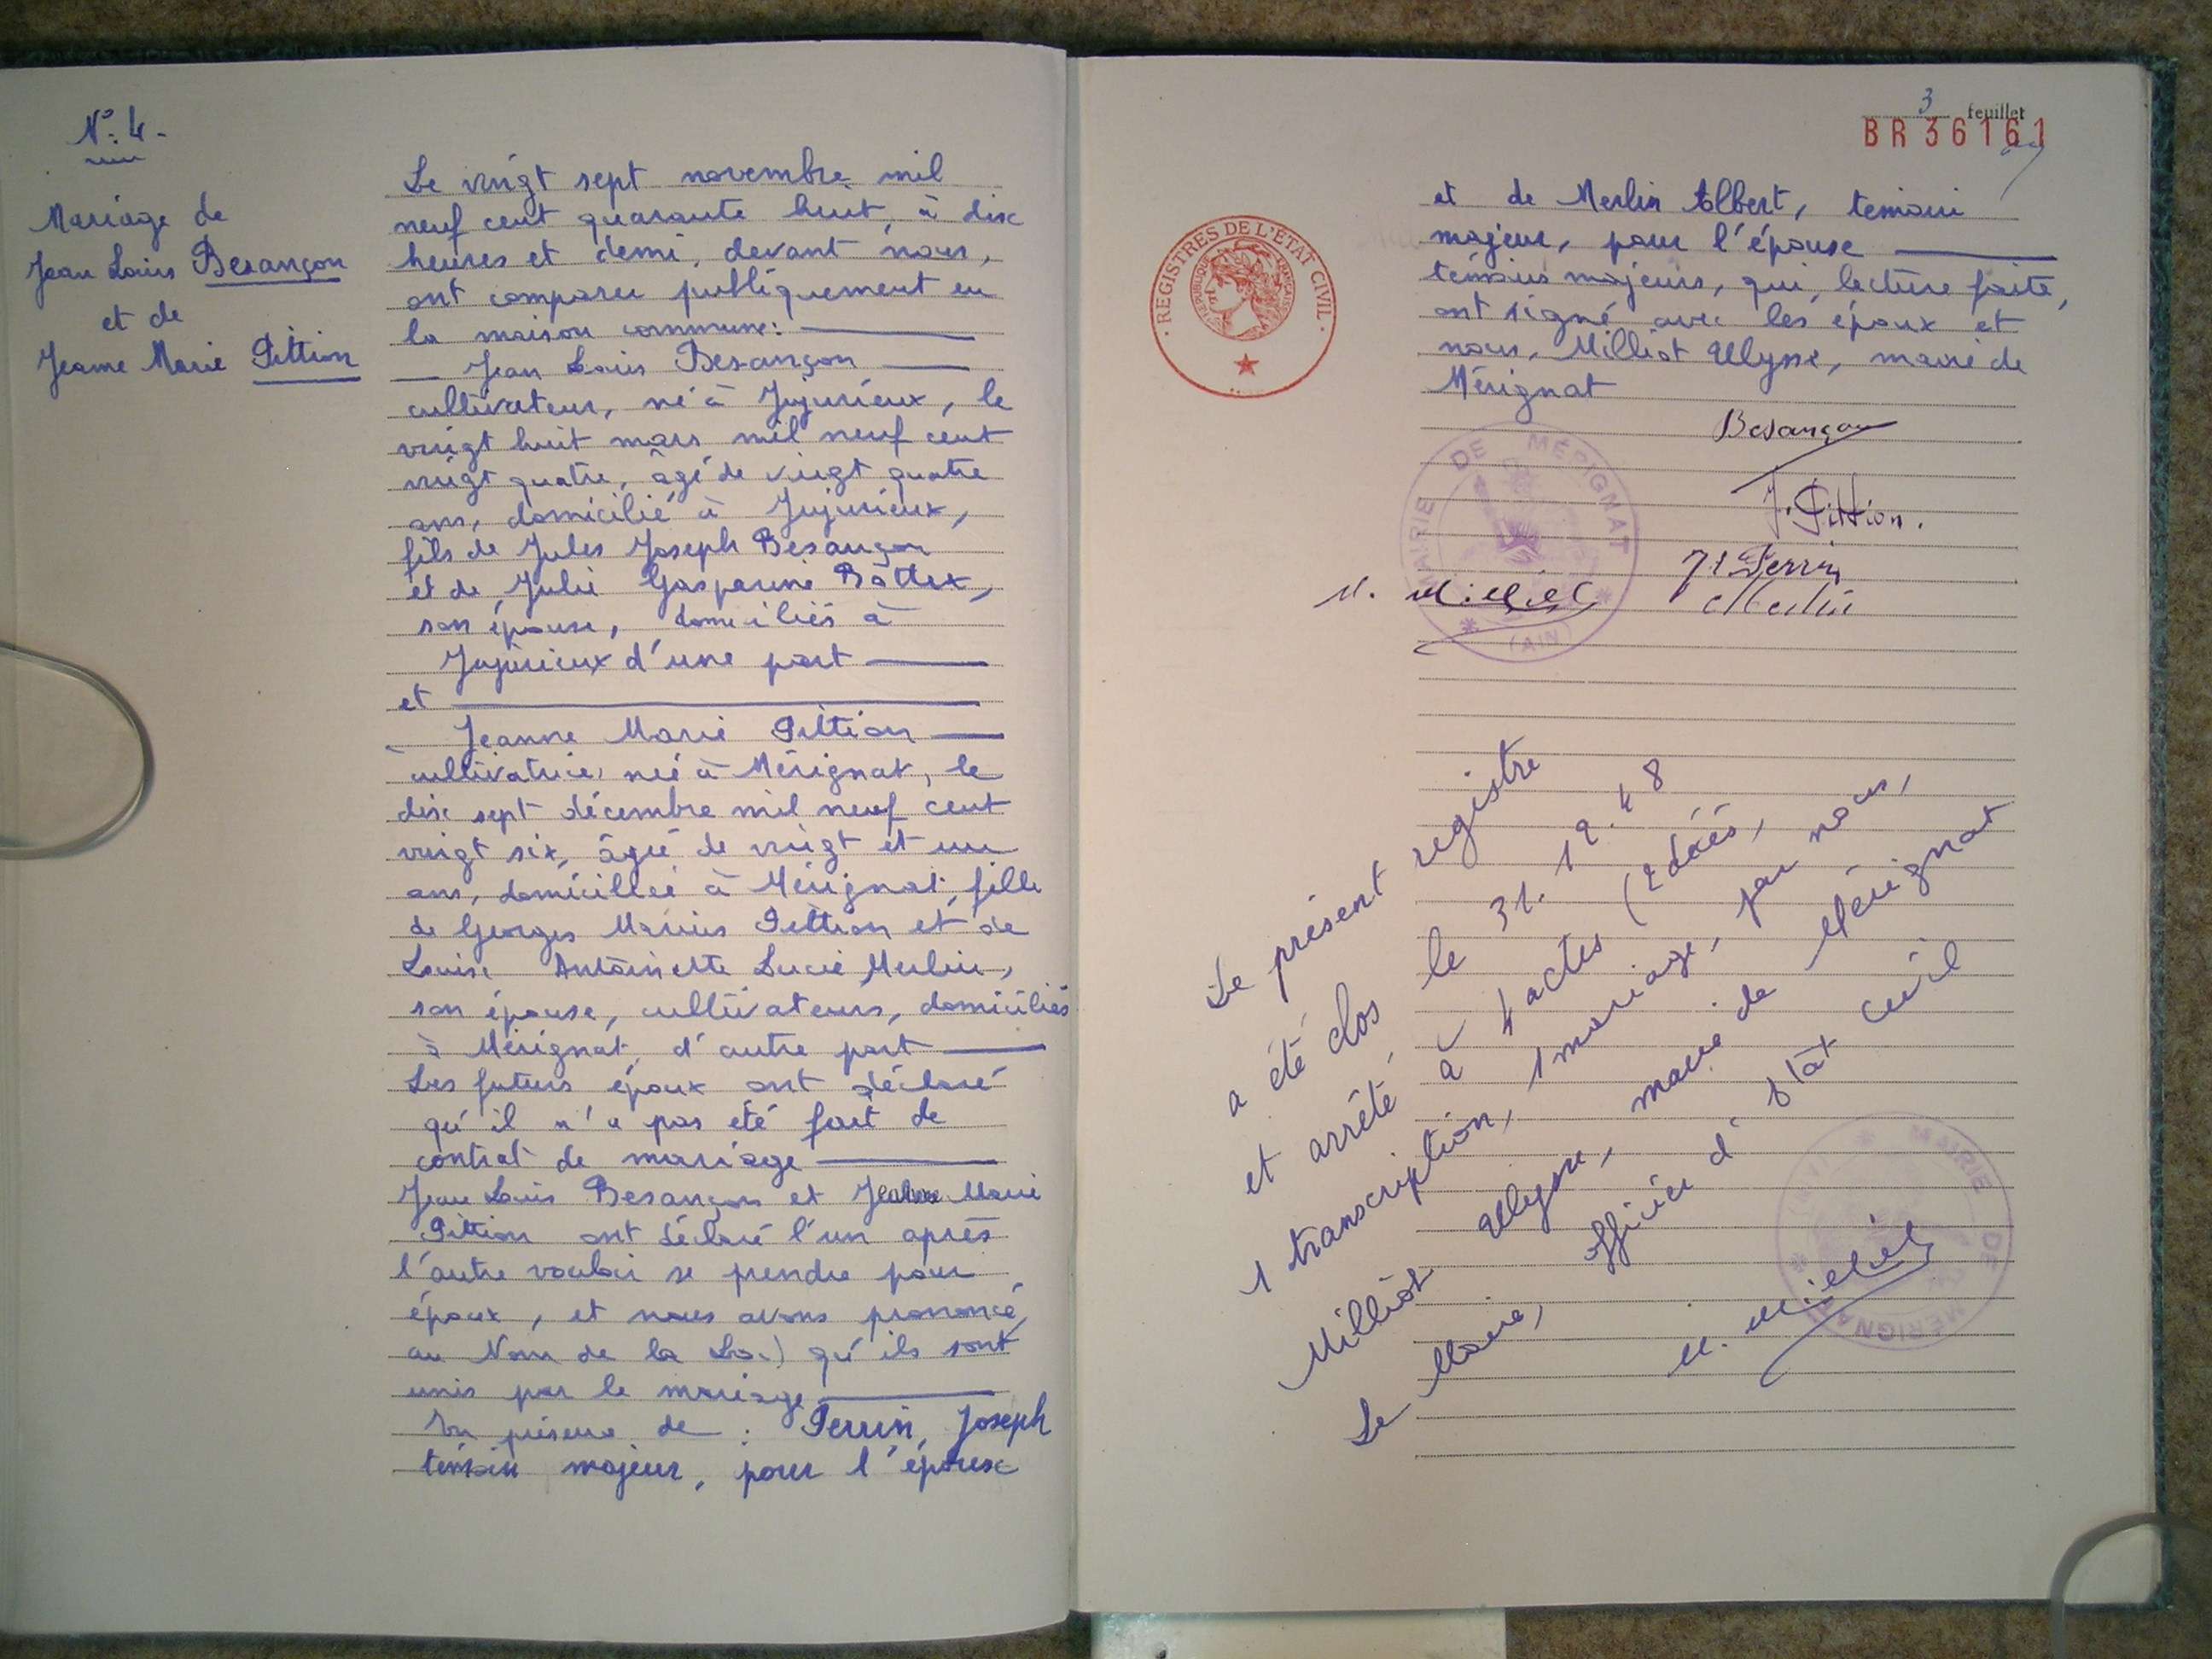 N°: 4 -
Mariage de
Jean Louis Besançon
et de
Jeanne Marie Pittion
Le vingt sept novembre mil
neuf cent quarante huit, à dix
heures et demi, devant nous,
ont comparu publiquement en
la maison commune:
Jean Louis Besançon
cultivateur, né à Jujurieux, le
vingt huit mars mil neuf cent
vingt quatre, âgé de vingt quatre
ans, domicilié à Jujurieux,
fils de Jules Joseph Besançon
et de Julie Gasparine Bottex,
son épouse, domiciliés à
Jujurieux d'une part
et
Jeanne Marie Pittion
cultivatrice, née à Mérignat, le
dix sept décembre mil neuf cent
vingt six, âgée de vingt et un
ans, domiciliée à Mérignat, fille
de Georges Marius Pittion et de
Louise Antoinette Lucie Merlin,
son épouse, cultivateurs, domiciliés
à Mérignat, d'autre part
Les futurs époux ont déclaré
qu'il n'a pas été fait de
contrat de mariage
Jean Louis Besançon et Jeanne Marie
Pittion ont déclaré l'un après
l'autre vouloir se prendre pour
époux, et nous avons prononcé
au Nom de la Loi qu'ils sont
unis par le mariage
En présence de : Perrin, Joseph
témoin majeur, pour l'épouse
3 feuillet
BR36161
et de Merlin Albert, temoin
majeur, pour l'épouse
témoins majeurs, qui, lecture faite,
ont signé avec les époux et
nous, Milliat Ulysse, maire de
Mérignat
REGISTRES DE L'ETAT CIVIL
REPUBLIQUE FRANÇAISE
Besançon
J. Pittion.
MAIRIE DE MÉRIGNAT
(AIN)
Jh Perrin
U. Milliat
Merlin
Le présent registre
a été clos le 31.12.48
et arrêté à 4 actes (2 décès,
1 transcription, 1 mariage, par nous,
Milliat Ulysse, maire de Mérignat
Le Maire, officier d'état civil
U. Milliat
MAIRIE DE MÉRIGNAT